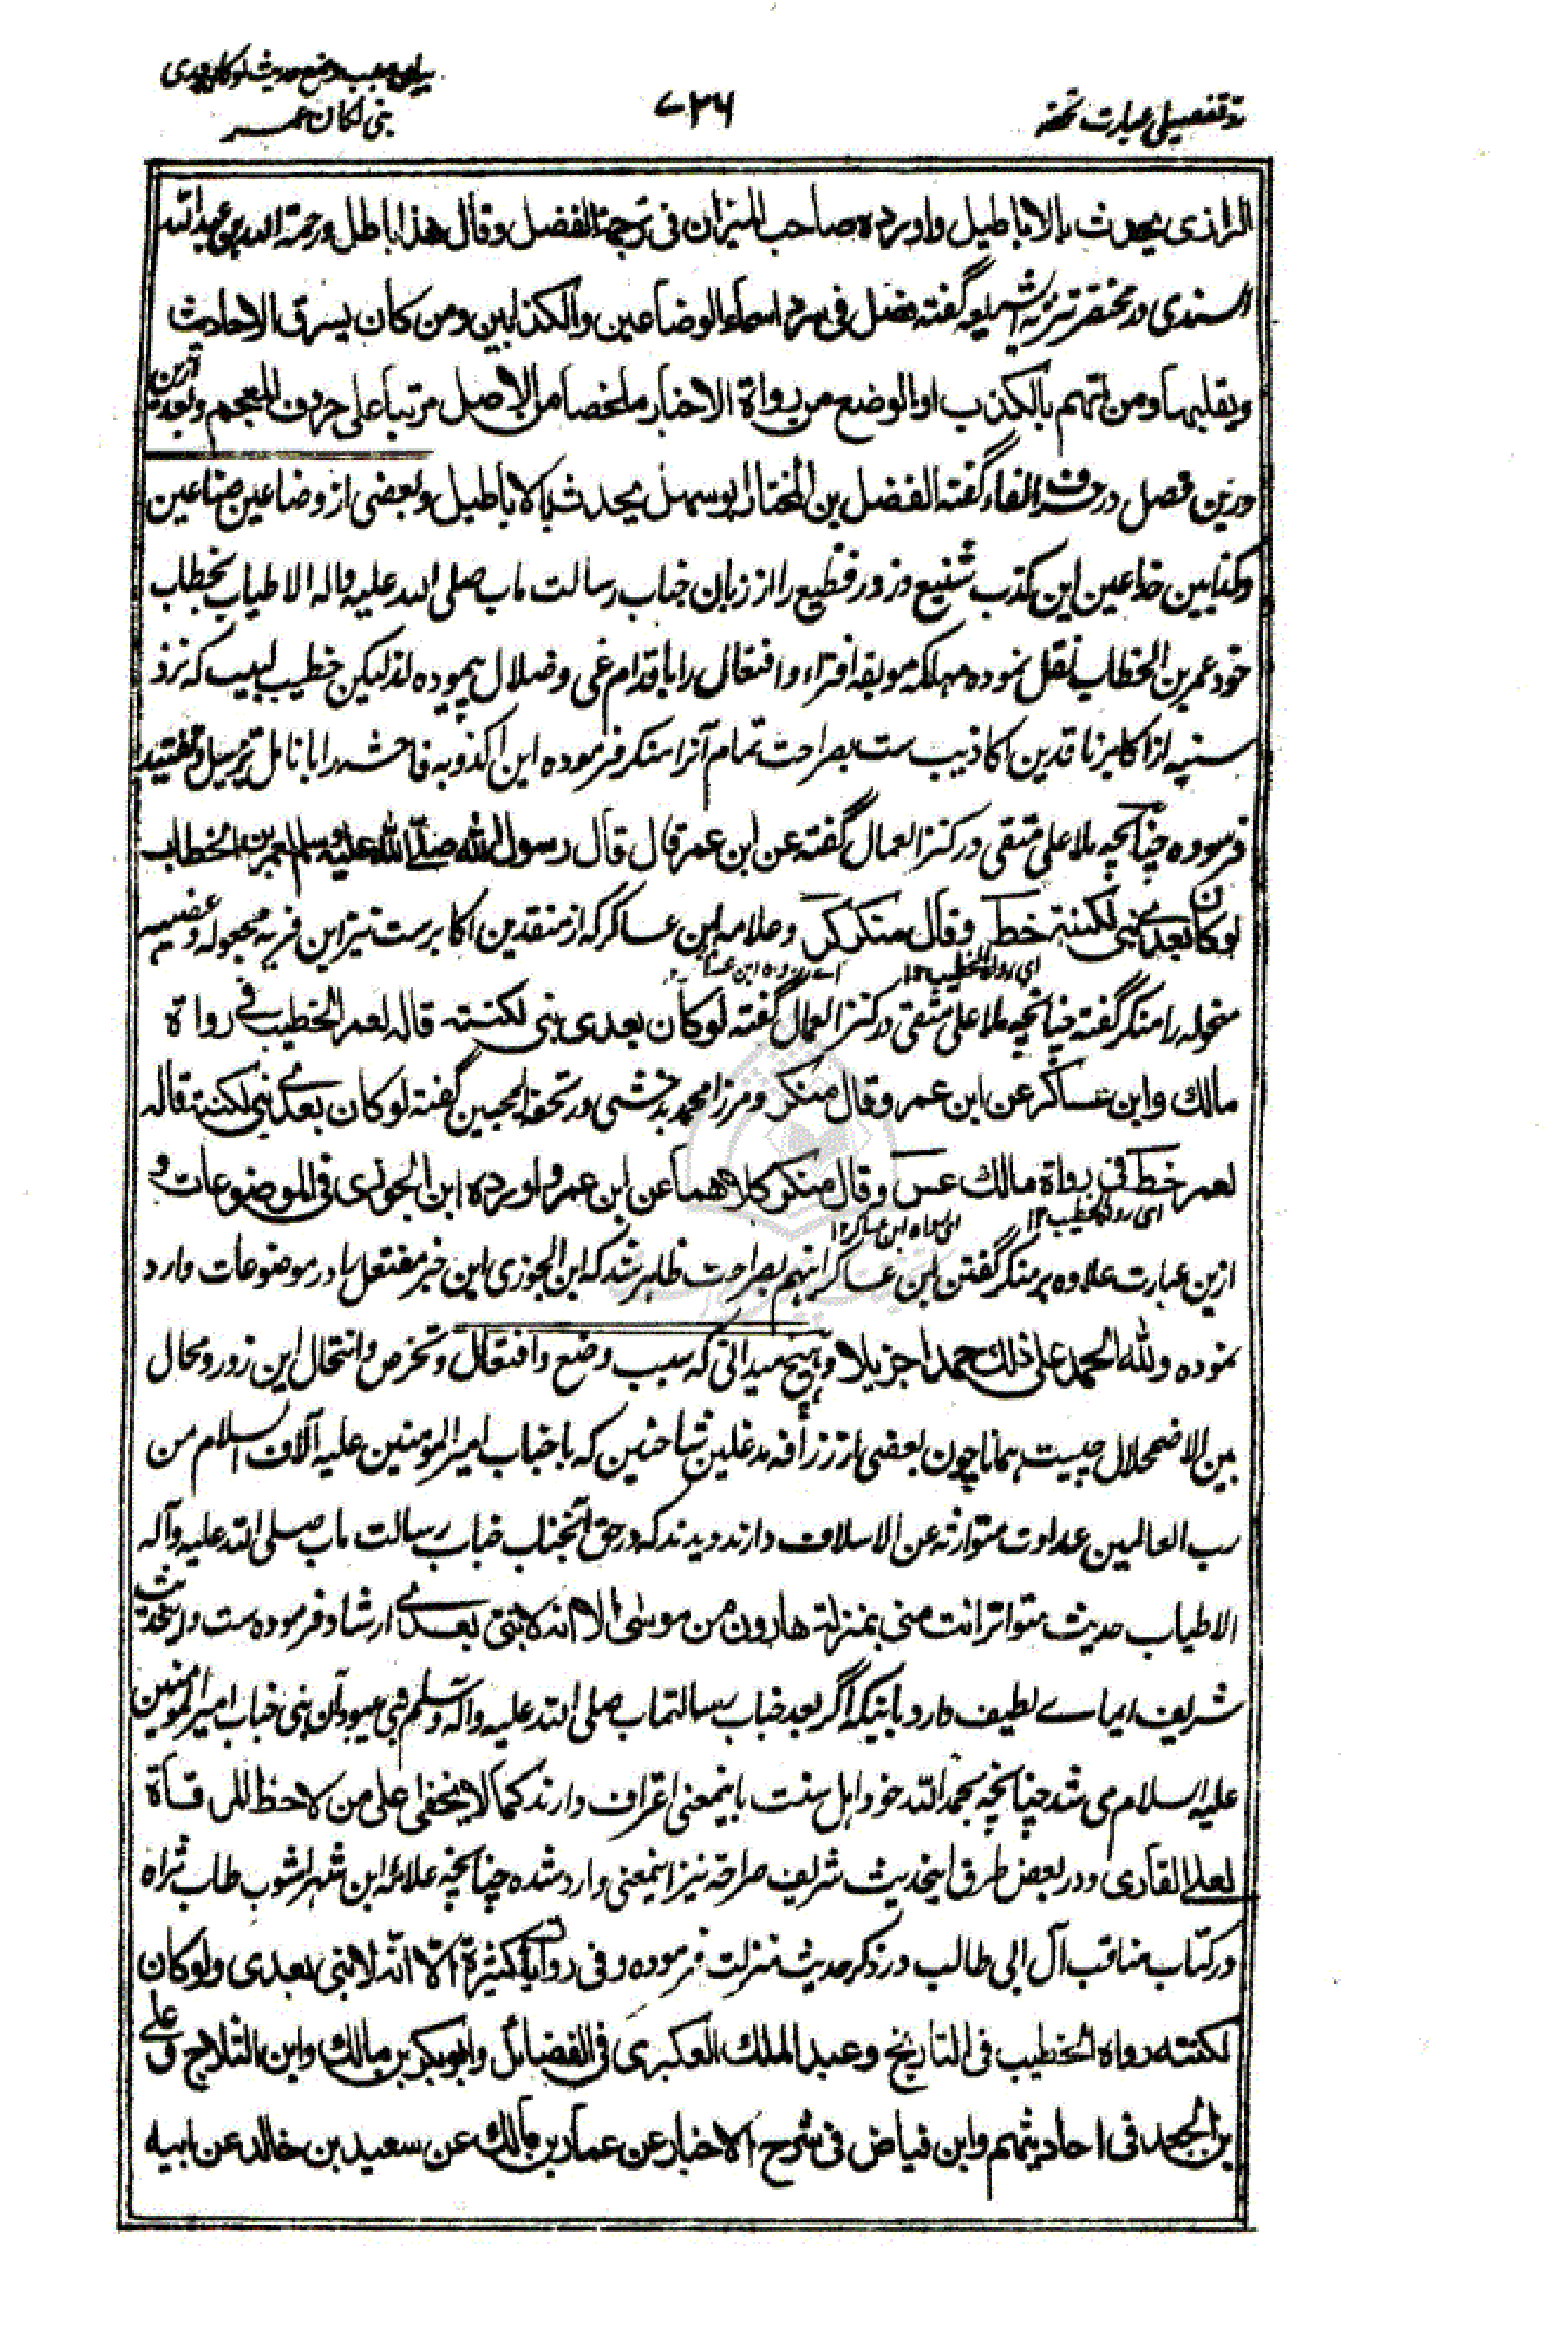 رد تفصیلی عبارت تحفه
۷۲۶
بیان سبب وضع حدیث لو کان بعدی
نبی لکان عمر
الرازی یحدث بالاباطیل واورده صاحب المیزان فی ترجمة الفضل وقال هذا باطل ورحمة الله بن عبدالله
السندی در مختصر تنزیه الشریعه گفته فصل فی سرد اسماء الوضاعین والکذابین ومن کان یسرق الاحادیث
ویقلبها ومن اتهم بالکذب او الوضع من رواة الاخبار ملخصا من الاصل مرتبا علی حروف المعجم وبعد ازین
درین فصل در حرف الفاء گفته الفضل بن المختار ابو سهل یحدث بالاباطیل وبعضی از وضاعین صناعین
وکذابین خداعین این کذب شنیع وزور فظیع را از زبان جناب رسالت ماب صلی الله علیه واله الاطیاب بخطاب
خود عمر بن الخطاب نقل نموده مهلکه موبقه افتراء وافتعال را باقدام غی وضلال پیموده اند لیکن خطیب لبیب که نزد
سنیه از اکابر ناقدین اکاذیب ست بصراحت تمام آنرا منکر فرموده این اکذوبه فاحشه را بانامل تزییل وتفنید
فرسوده چنانچه ملا علی متقی در کنز العمال گفته عن ابن عمر قال قال رسول الله صلّی الله علیه وسلم لعمر بن الخطاب
لو کان بعدی نبی لکنته خط وقال منکر کر وعلامه ابن عساکر که از منقدین اکابرست نیز این فریه مجعوله وعضیهه
ای رواه الخطیب ۱۲
ای رواه ابن عساکر
منحوله را منکر گفته چنانچه ملا علی متقی در کنز العمال گفته لو کان بعدی نبی لکنته قاله لعمر الخطیب فی رواة
مالک وابن عساکر عن ابن عمر وقال منکر ومرزا محمد بدخشی در تحفة المحبین گفته لو کان بعدی نبی لکنته قاله
لعمر خط فی رواة مالک عس وقال منکر کلاهما عن ابن عمر واورده ابن الجوزی فی الموضوعات و
ای رواه الخطیب ۱۲
ای رواه ابن عساکر ۱۲
ازین عبارت علاوه بر منکر گفتن ابن عساکر اینهم بصراحت ظاهر شد که ابن الجوزی این خبر مفتعل را در موضوعات وارد
نموده ولله الحمد علی ذلک حمدا جزیلا وهیچ میدانی که سبب وضع وافتعال وتخرص وانتحال این زور ومحال
بین الاضمحلال چیست همانا چون بعضی از زرافه مدغلین شاحنین که با جناب امیر المومنین علیه آلاف السلام من
رب العالمین عداوت متوارثه عن الاسلاف دارند دیدند که در حق آنجناب جناب رسالت ماب صلی الله علیه وآله
الاطیاب حدیث متواتر انت منی بمنزلة هارون من موسی الا انه لا نبی بعدی ارشاد فرموده ست واینحدیث
شریف ایمای لطیف دارد باینکه اگر بعد جناب رسالتماب صلی الله علیه وآله وسلم نبی میبود آن نبی جناب امیر المومنین
علیه السلام می شد چنانچه بحمد الله خود اهل سنت باینمعنی اعتراف دارند کما لا یخفی علی من لاحظ المرقاة
لعلی القاری ودر بعض طرق اینحدیث شریف صراحة نیز اینمعنی وارد شده چنانچه علامه ابن شهر آشوب طاب ثراه
در کتاب مناقب آل ابی طالب در ذکر حدیث منزلت فرموده وفی روایات کثیرة الّا انّه لا نبی بعدی ولو کان
لکنته رواه الخطیب فی التاریخ وعبد الملک العکبری فی الفضائل وابو بکر بن مالک وابن الثلاج وعلی
بن الجعد فی احادیثهم وابن فیاض فی شرح الاخبار عن عمار بن مالک عن سعید بن خالد عن ابیه